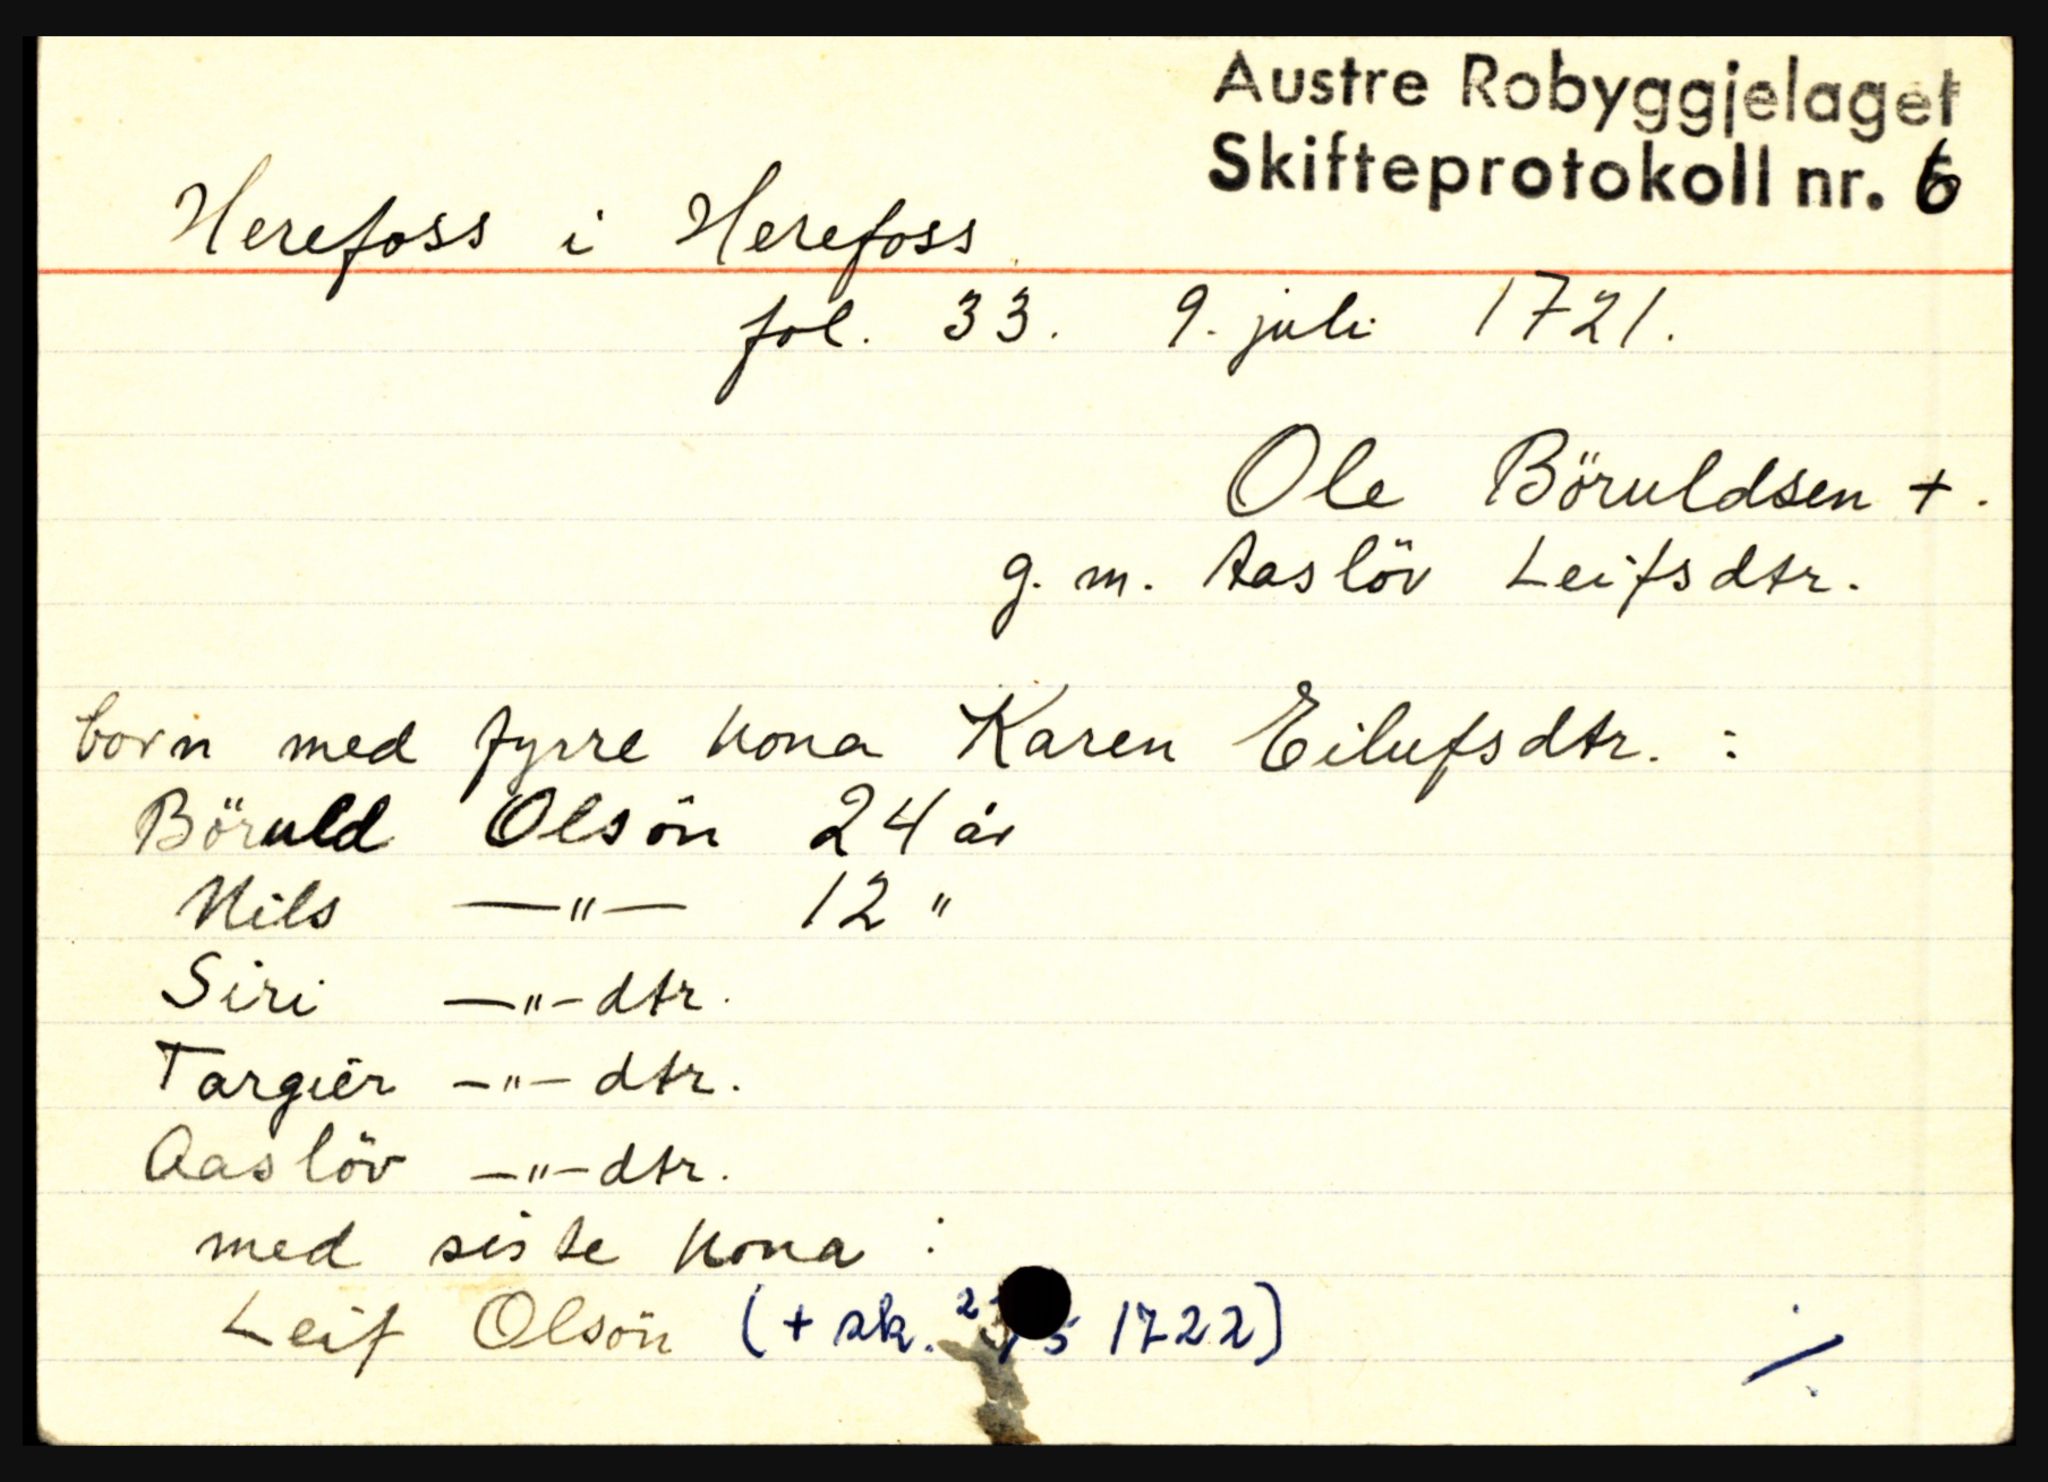 Austre Robyggjelaget
Skifteprotokoll nr. 6
Herefoss i Herefoss
fol. 33. 9. juli 1721.
Ole Böruldsen +.
g. m. Aaslöv Leifsdtr.
born med fyrre kona Karen Eilufsdtr. :
Böruld Olsön 24 år
Nils —"— 12 "
Siri —"— dtr.
Targier —"— dtr.
Aaslöv —"— dtr.
med siste kona :
Leif Olsön (+ sk. 5 1722)